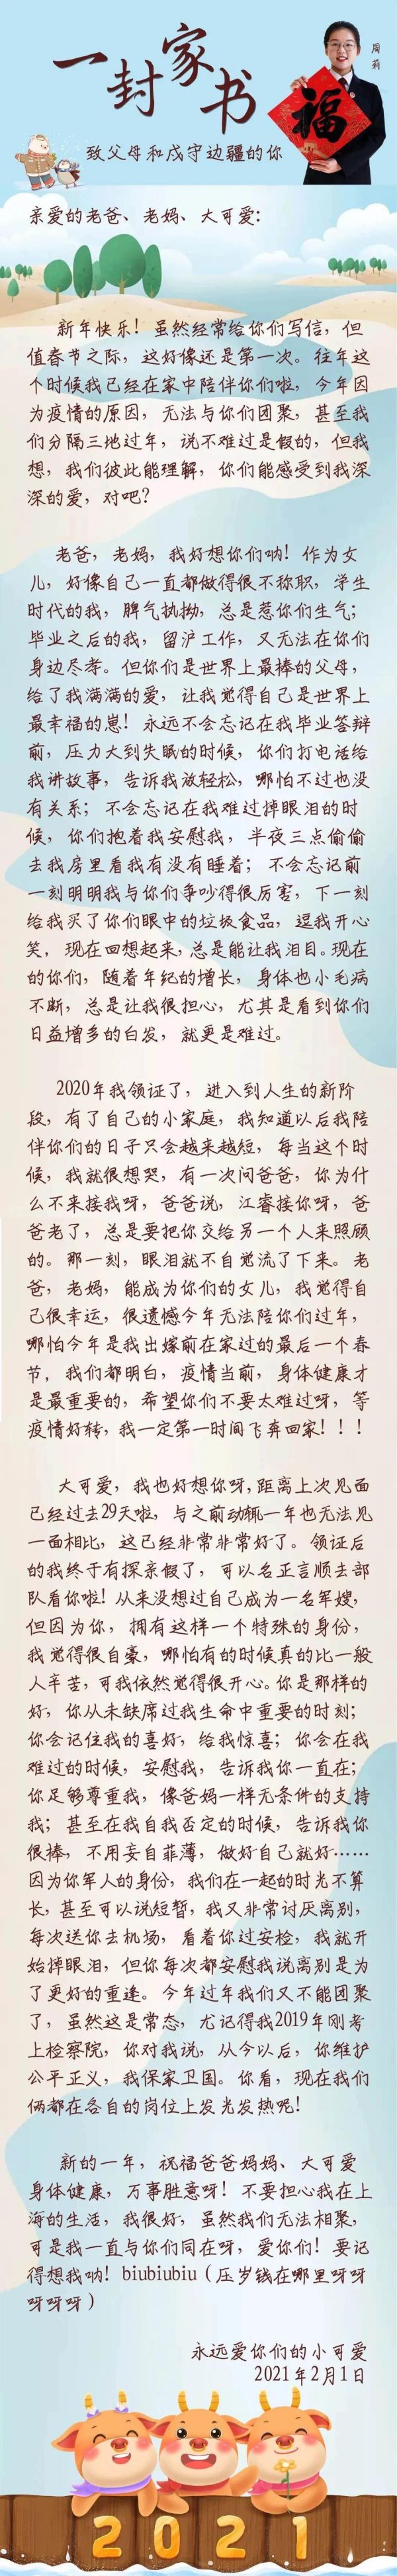 一封家书
周莉
福
致父母和戍守边疆的你
亲爱的老爸、老妈、大可爱：
新年快乐！虽然经常给你们写信，但
值春节之际，这好像还是第一次。往年这
个时候我已经在家中陪伴你们啦，今年因
为疫情的原因，无法与你们团聚，甚至我
们分隔三地过年，说不难过是假的，但我
想，我们彼此能理解，你们能感受到我深
深的爱，对吧？
老爸，老妈，我好想你们呐！作为女
儿，好像自己一直都做得很不称职，学生
时代的我，脾气执拗，总是惹你们生气；
毕业之后的我，留沪工作，又无法在你们
身边尽孝。但你们是世界上最棒的父母，
给了我满满的爱，让我觉得自己是世界上
最幸福的崽！永远不会忘记在我毕业答辩
前，压力大到失眠的时候，你们打电话给
我讲故事，告诉我放轻松，哪怕不过也没
有关系；不会忘记在我难过掉眼泪的时
候，你们抱着我安慰我，半夜三点偷偷
去我房里看我有没有睡着；不会忘记前
一刻明明我与你们争吵得很厉害，下一刻
给我买了你们眼中的垃圾食品，逗我开心
笑，现在回想起来，总是能让我泪目。现在
的你们，随着年纪的增长，身体也小毛病
不断，总是让我很担心，尤其是看到你们
日益增多的白发，就更是难过。
2020年我领证了，进入到人生的新阶
段，有了自己的小家庭，我知道以后我陪
伴你们的日子只会越来越短，每当这个时
候，我就很想哭，有一次问爸爸，你为什
么不来接我呀，爸爸说，江睿接你呀，爸
爸老了，总是要把你交给另一个人来照顾
的。那一刻，眼泪就不自觉流了下来。老
爸，老妈，能成为你们的女儿，我觉得自
己很幸运，很遗憾今年无法陪你们过年，
哪怕今年是我出嫁前在家过的最后一个春
节，我们都明白，疫情当前，身体健康才
是最重要的，希望你们不要太难过呀，等
疫情好转，我一定第一时间飞奔回家！！！
大可爱，我也好想你呀，距离上次见面
已经过去29天啦，与之前动辄一年也无法见
一面相比，这已经非常非常好了。领证后
的我终于有探亲假了，可以名正言顺去部
队看你啦！从来没想过自己成为一名军嫂，
但因为你，拥有这样一个特殊的身份，
我觉得很自豪，哪怕有的时候真的比一般
人辛苦，可我依然觉得很开心。你是那样的
好，你从未缺席过我生命中重要的时刻；
你会记住我的喜好，给我惊喜；你会在我
难过的时候，安慰我，告诉我你一直在；
你足够尊重我，像爸妈一样无条件的支持
我；甚至在我自我否定的时候，告诉我你
很棒，不用妄自菲薄，做好自己就好……
因为你军人的身份，我们在一起的时光不算
长，甚至可以说短暂，我又非常讨厌离别，
每次送你去机场，看着你过安检，我就开
始掉眼泪，但你每次都安慰我说离别是为
了更好的重逢。今年过年我们又不能团聚
了，虽然这是常态，尤记得我2019年刚考
上检察院，你对我说，从今以后，你维护
公平正义，我保家卫国。你看，现在我们
俩都在各自的岗位上发光发热呢！
新的一年，祝福爸爸妈妈、大可爱
身体健康，万事胜意呀！不要担心我在上
海的生活，我很好，虽然我们无法相聚，
可是我一直与你们同在呀，爱你们！要记
得想我呐！biubiubiu（压岁钱在哪里呀呀
呀呀呀）
永远爱你们的小可爱
2021年2月1日
2021